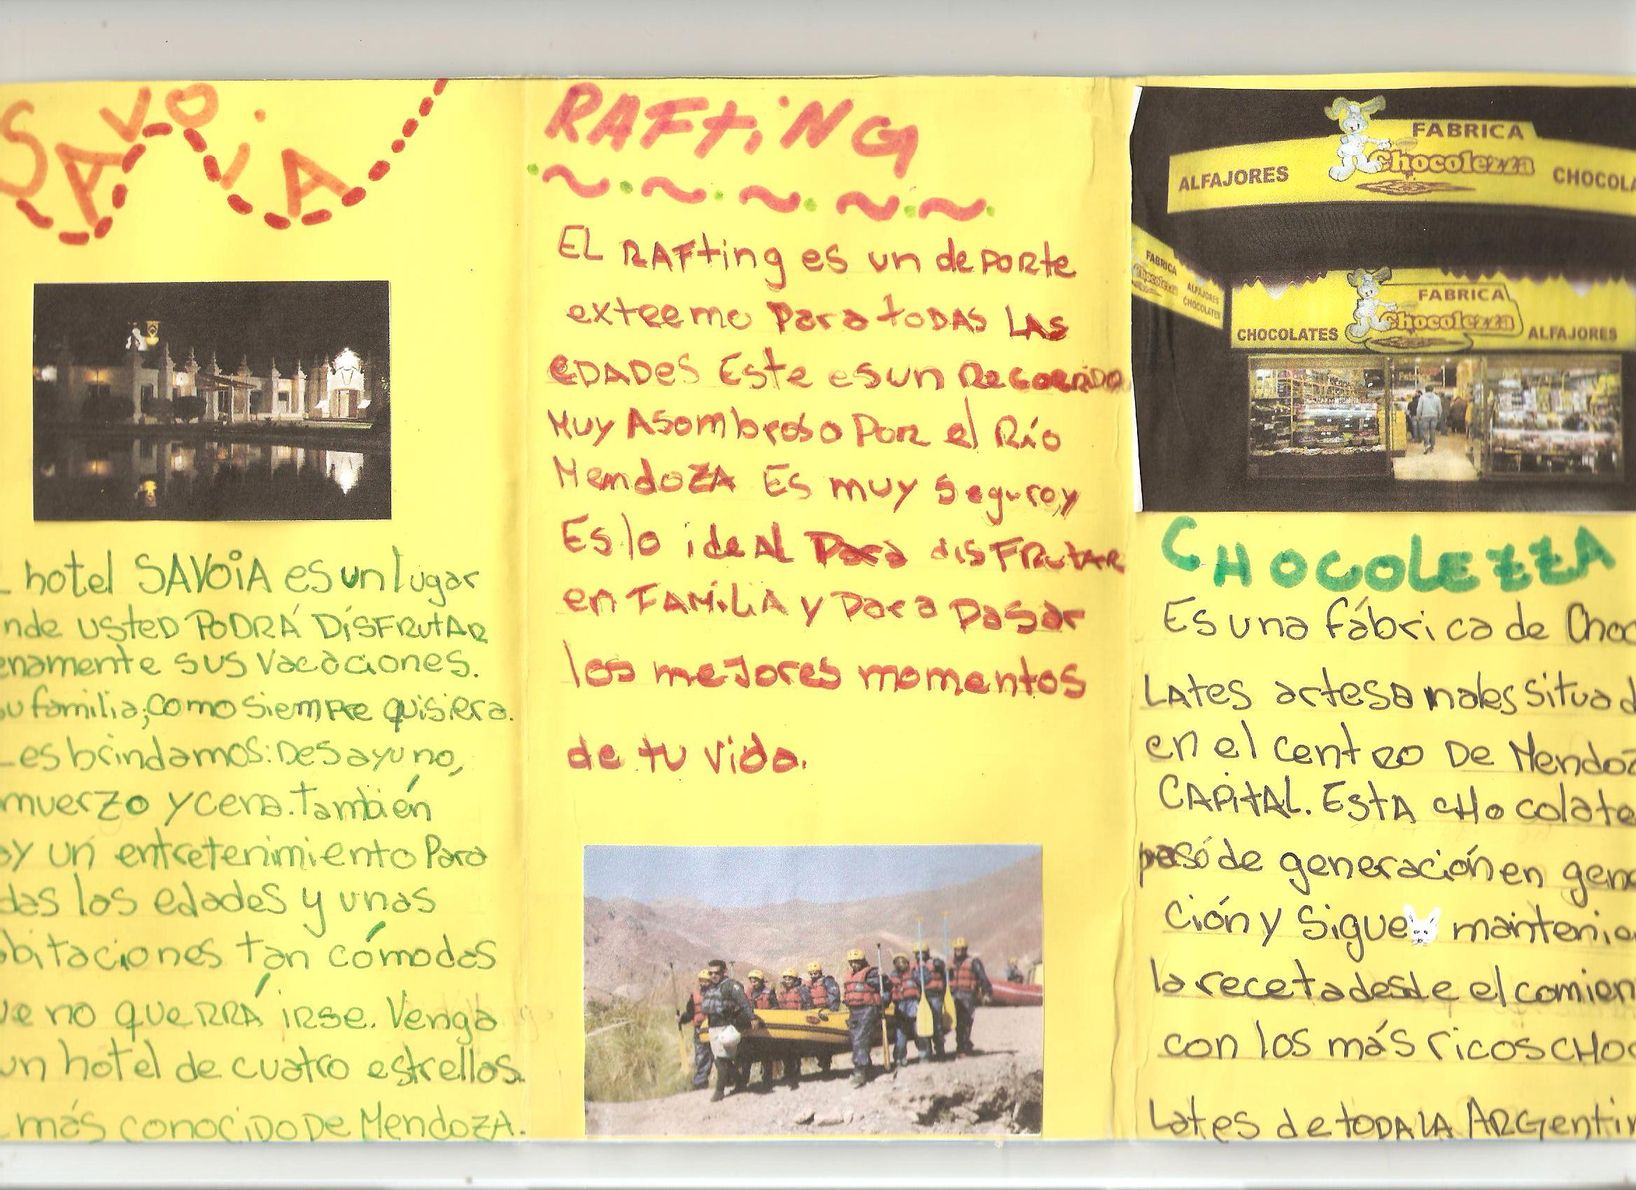 SAVOiA
L hotel SAVOiA es un lugar
nde USTED PODRÁ DiSFRUTAR
enamente sus vacaciones.
su familia, como siempre quisiera.
Les brindamos: Desayuno,
muerzo y cena. también
ay un entretenimiento Para
das las edades y unas
abitaciones tan cómodas
ue no querrá irse. Venga
un hotel de cuatro estrellas.
más conociDo De MendozA.
RAFtiNG
EL RAFting es un dePorte
extremo Para toDAS LAS
EDADES Este es un Recorrido
Muy Asombroso Por el Río
MendozA Es muy seguro y
Es lo ideAL Para disFRutAR
en FAMiLiA y Para Pasar
los mejores momentos
de tu vida.
FABRICA
Chocolezza
ALFAJORES
CHOCOLA
FABRICA
Chocolezza
ALFAJORES
CHOCOLATES
FABRICA
Chocolezza
CHOCOLATES
ALFAJORES
CHOCOLEZZA
Es una fábrica de Choc
LAtes artesanales situad
en el centro De Mendoz
CAPitAL. EstA CHocolate
pasó de generación en gene
ción y sigue mantenie
la receta desde el comien
con los más ricos CHOC
Lates de toDA LA ARGentin